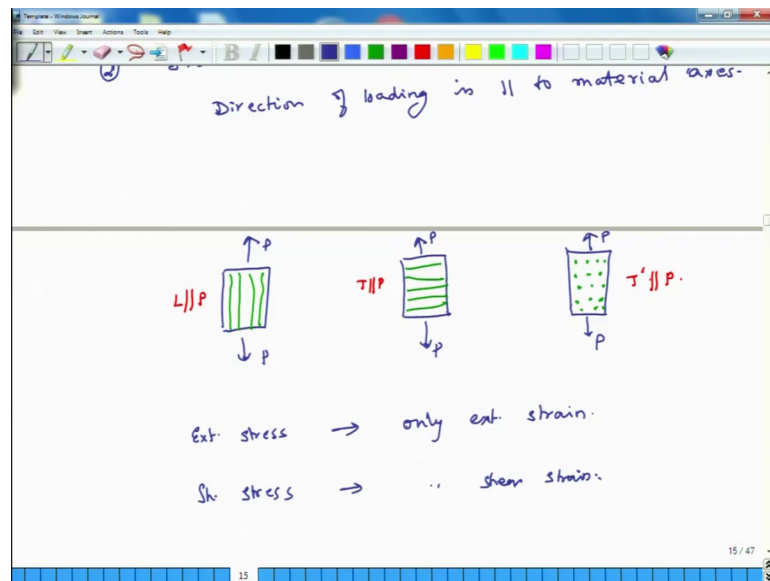 Template - Windows Journal
File Edit View Insert Actions Tools Help
B I
②
Direction of loading is || to material axes-
P P P
L||P T||P T'||P.
P P P
Ext. stress → only ext. strain.
Sh. stress → " shear strain.
15 / 47
15